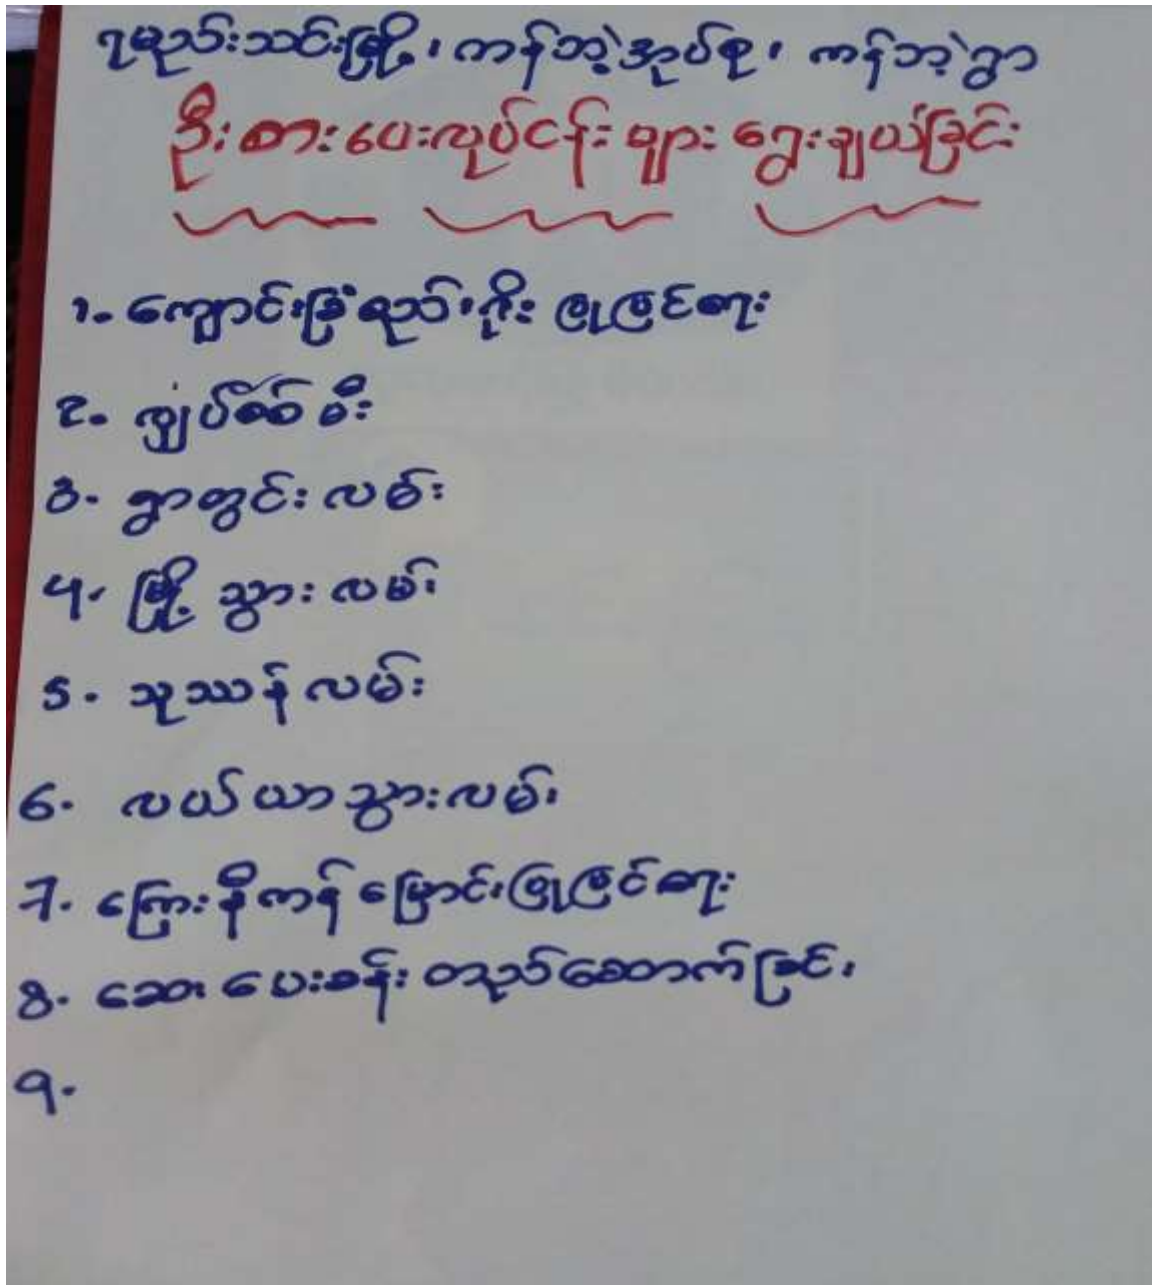 ရမည်းသင်းမြို့၊ ကန်ဘဲ့အုပ်စု၊ ကန်ဘဲ့ရွာ
ဦးစားပေးလုပ်ငန်းများ ရွေးချယ်ခြင်း
1. ကျောင်းခြံစည်းရိုး ပြုပြင်ရေး
2. လျှပ်စစ်မီး
3. ရွာတွင်းလမ်း
4. မြို့သွားလမ်း
5. သုဿန်လမ်း
6. လယ်ယာသွားလမ်း
7. ကြေးနီကန်မြောင်းပြုပြင်ရေး
8. ဆေးပေးခန်း တည်ဆောက်ခြင်း
9.